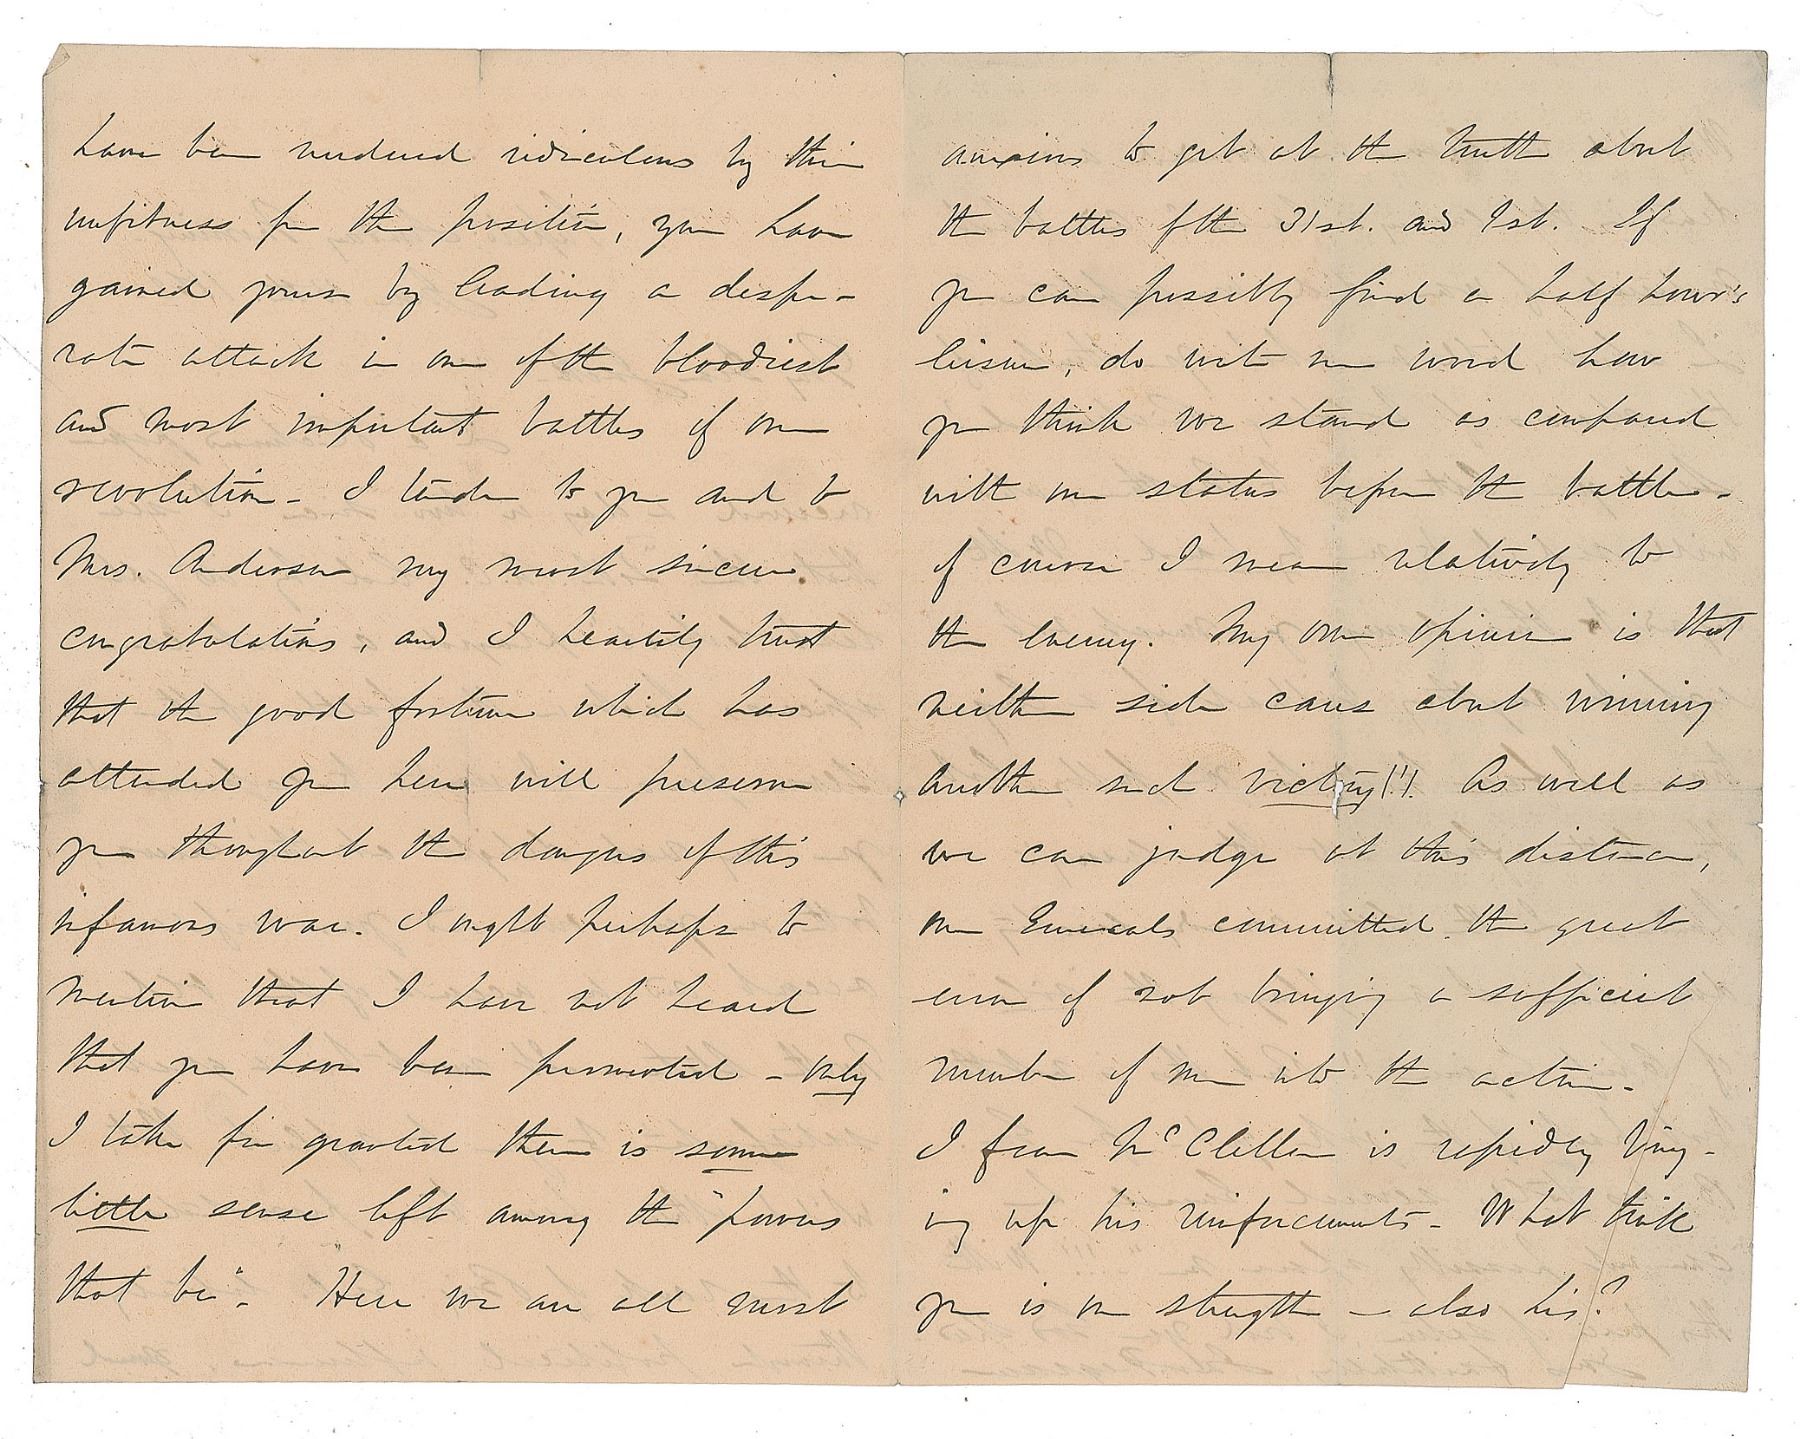 have been rendered ridiculous by their
unfitness for the position, you have
gained yours by leading a despe-
rate attack in one of the bloodiest
and most important battles of our
revolution - I tender to you and to
Mrs. Anderson my most sincere
congratulations, and I heartily trust
that the good fortune which has
attended you here will preserve
you throughout the dangers of this
infamous war. I ought perhaps to
mention that I have not heard
that you have been promoted - only
I take for granted there is some
little sense left among the "powers
that be". Here we are all most
anxious to get at the truth about
the battles of the 31st. and 1st. If
you can possibly find a half hour's
leisure, do write me word how
you think we stand as compared
with our status before the battle -
of course I mean relatively to
the enemy. My own opinion is that
neither side cares about winning
another such victory!!! As well as
we can judge at this distance,
our Generals committed the great
error of not bringing a sufficient
number of men into the action -
I fear McClellan is rapidly bring-
ing up his reinforcements - What think
you is our strength - also his?